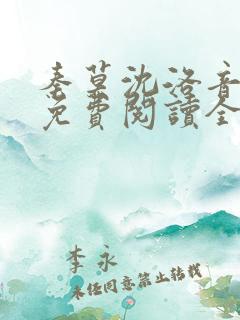 秦慕沈洛音
免費閱讀全
李永
未经同意禁止转载